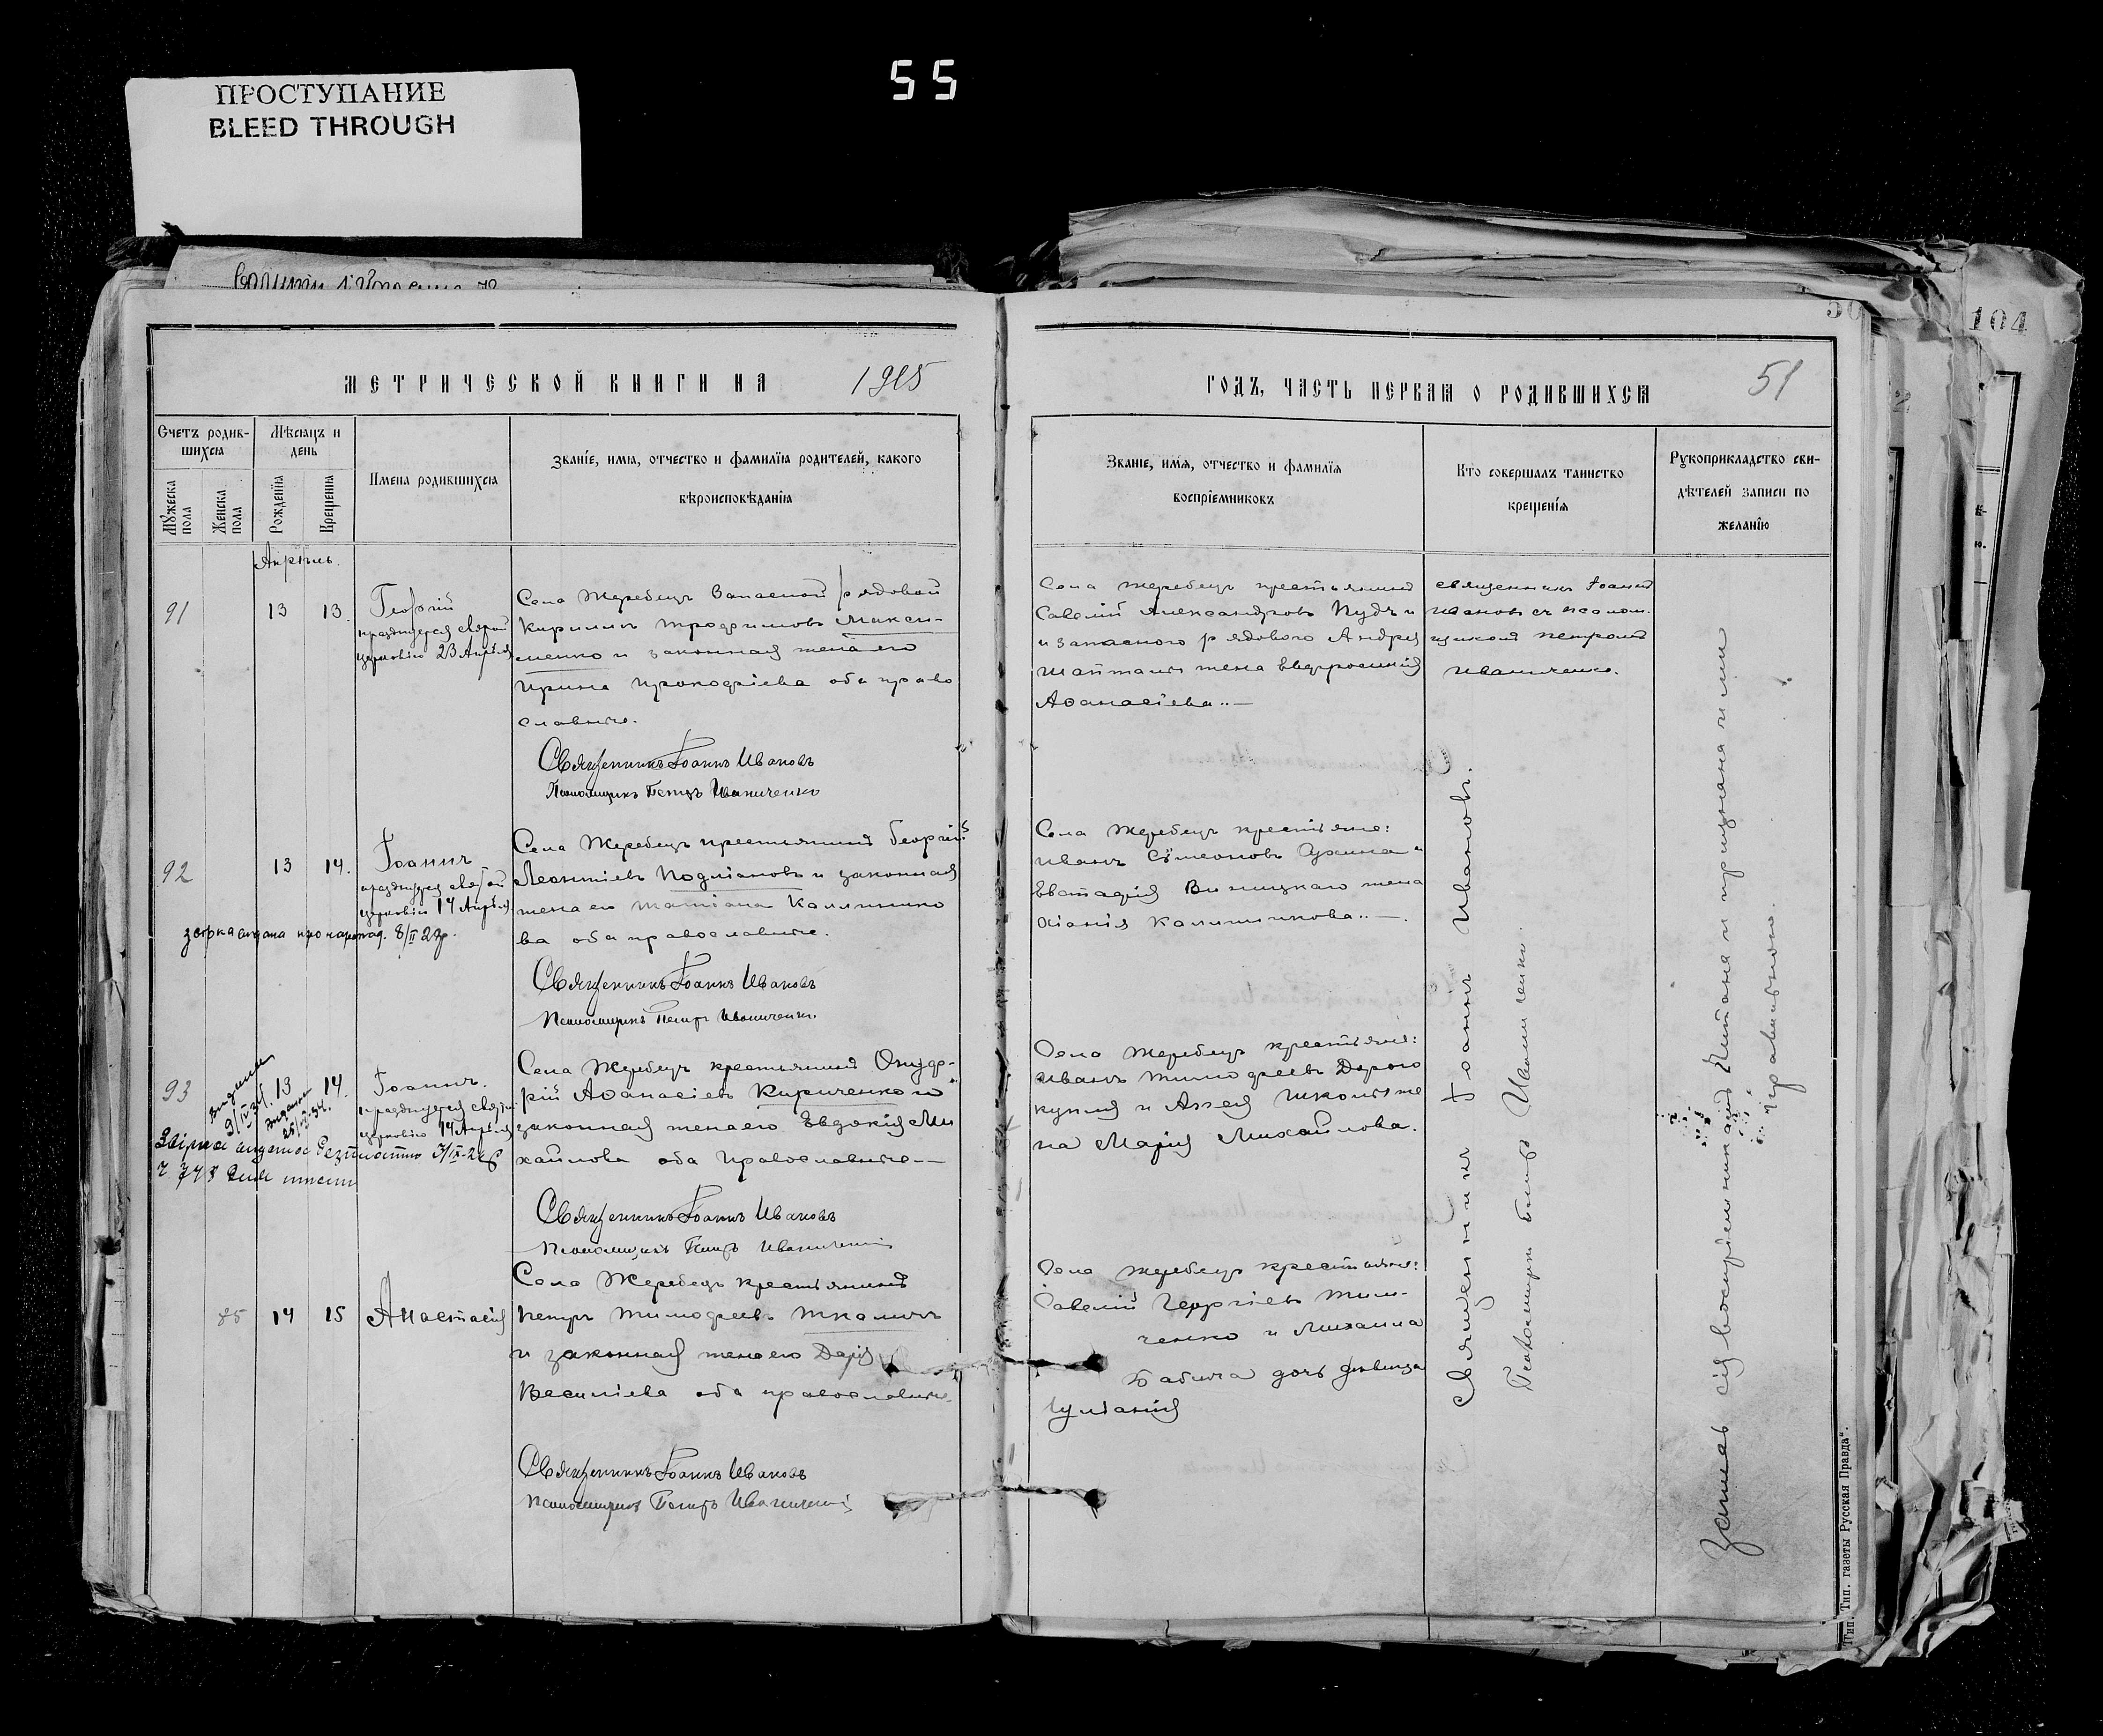 ПРОСТУПАНИЕ
BLEED THROUGH
55
104
МЕТРИЧЕСКОЙ КНИГИ НА 1915
ГОДЪ, ЧАСТЬ ПЕРВАЯ О РОДИВШИХСЯ 51
Счетъ родив-
шихся
Мужеска пола
Женска пола
Мѣсяцъ и
день
Рожденія
Крещенія
Имена родившихся
Званіе, имя, отчество и фамилія родителей, какого
вѣроисповѣданія
Званіе, имя, отчество и фамилія
воспріемниковъ
Кто совершалъ таинство
крещенія
Рукоприкладство сви-
дѣтелей записи по
желанію
Апрѣль.
91 13 13.
Георгій
празднуется святой
церковію 23 Апрѣля
Села Жеребецъ Запасной рядовой
Кириллъ Трофимовъ Макси-
менко и законная жена его
Ирина Прокофіева оба право
славные.
Священникъ Іоаннъ Ивановъ
Псаломщикъ Петръ Иваниченко
Села Жеребецъ крестьянинъ
Савелій Александровъ и
и запасного рядового Андрея
жена Евфросинія
Аѳанасіева..—
священникъ Іоаннъ
Ивановъ съ псалом-
щикомъ Петромъ
Иваниченко.
92 13 14.
Іоаннъ
празднуется святой
церковію 14 Апрѣля
8/II 29р.
Села Жеребецъ крестьянинъ Георгій
Леонтіевъ и законная
жена его Татіана Каллинико
ва оба православные.
Священникъ Іоаннъ Ивановъ
Псаломщикъ Петръ Иваниченко
Села Жеребецъ крестьяне:
Иванъ Сѵмеоновъ и
Евстафія Виницкаго жена
Калинникова..—.
93 13 14.
Іоаннъ.
празднуется святой
церковію 14 Апрѣля
Села Жеребецъ крестьянинъ Онуф-
рій Аѳанасіевъ Кириченко и
законная жена его Евдокія Ми
хайлова оба православные—
Священникъ Іоаннъ Ивановъ
Псаломщикъ Петръ Иваниченко
Села Жеребецъ крестьяне:
Иванъ Тимофеевъ Дорого
купля и же
на Марія Михайлова.
85 14 15
Анастасія
Села Жеребецъ крестьянинъ
Петръ Тимофеевъ Ткаличъ
и законная жена его Дарія
Василіева оба православные.
Священникъ Іоаннъ Ивановъ
Псаломщикъ Петръ Иваниченко
Села Жеребецъ крестьяне:
Савелій Георгіевъ Тим-
ченко и Михаила
Бабича дочь дѣвица
Іуліанія
Священникъ Іоаннъ Ивановъ.
Псаломщикъ Петръ Иваниченко.
Запись сія воспріемниками читана и признана ими
правильною.
Тип. газеты Русская Правда".